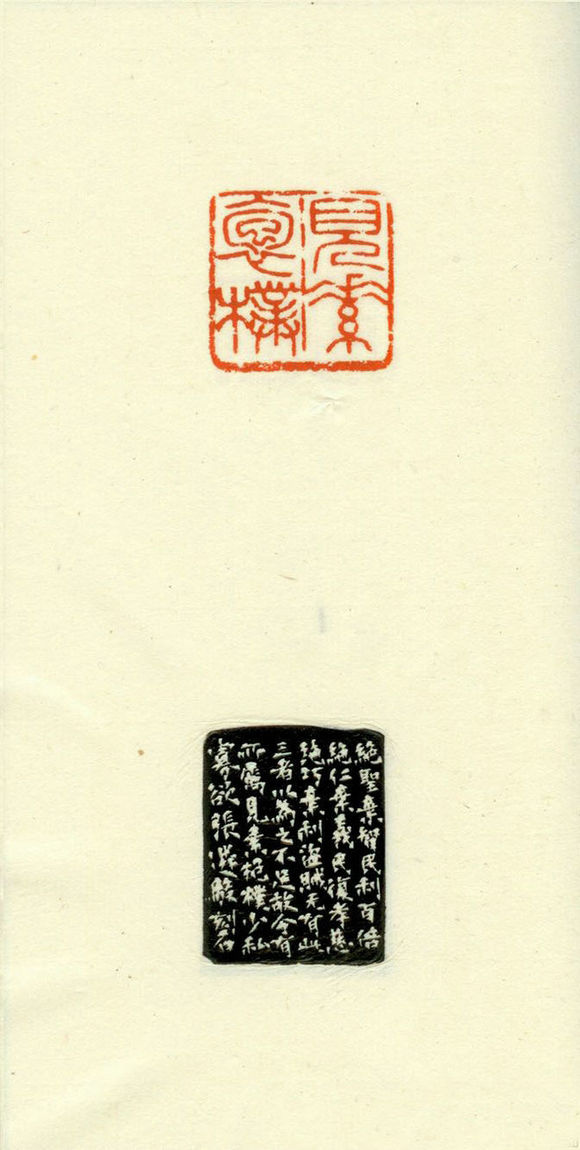 見素
袌樸
絶聖棄智民利百倍
絶仁棄義民復孝慈
絶巧棄利盜賊无有此
三者以為文不足故令有
所屬見素抱樸少私
寡欲張刻石